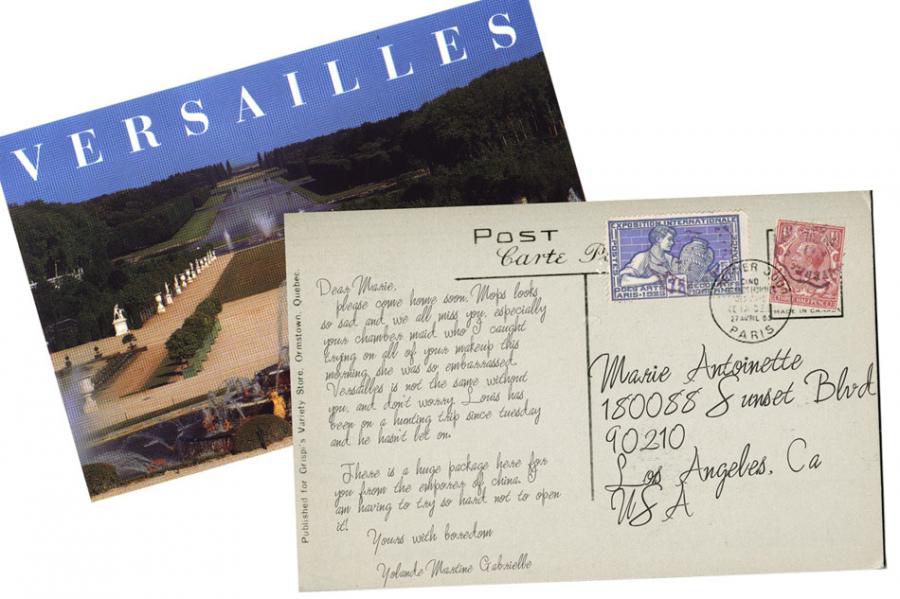 VERSAILLES
POST
Carte
Dear Marie,
please come home soon. Mops looks
so sad and we all miss you, especially
your chamber maid who I caught
trying on all of your makeup this
morning she was so embarrassed.
Versailles is not the same without
you, and don't worry Louis has
been on a hunting trip since tuesday
and he hasn't let on.
There is a huge package here for
you from the emporer of china. I
am having to try so hard not to open
it!
Yours with boredom
Yolande Martine Gabrielle
Published for Grispi's Variety Store, Ormstown, Quebec.
EXPOSITION INTERNATIONALE
PARIS-1925
75
27 AVRIL
PARIS
MADE IN
Marie Antoinette
180088 Sunset Blvd
90210
Los Angeles, Ca
USA